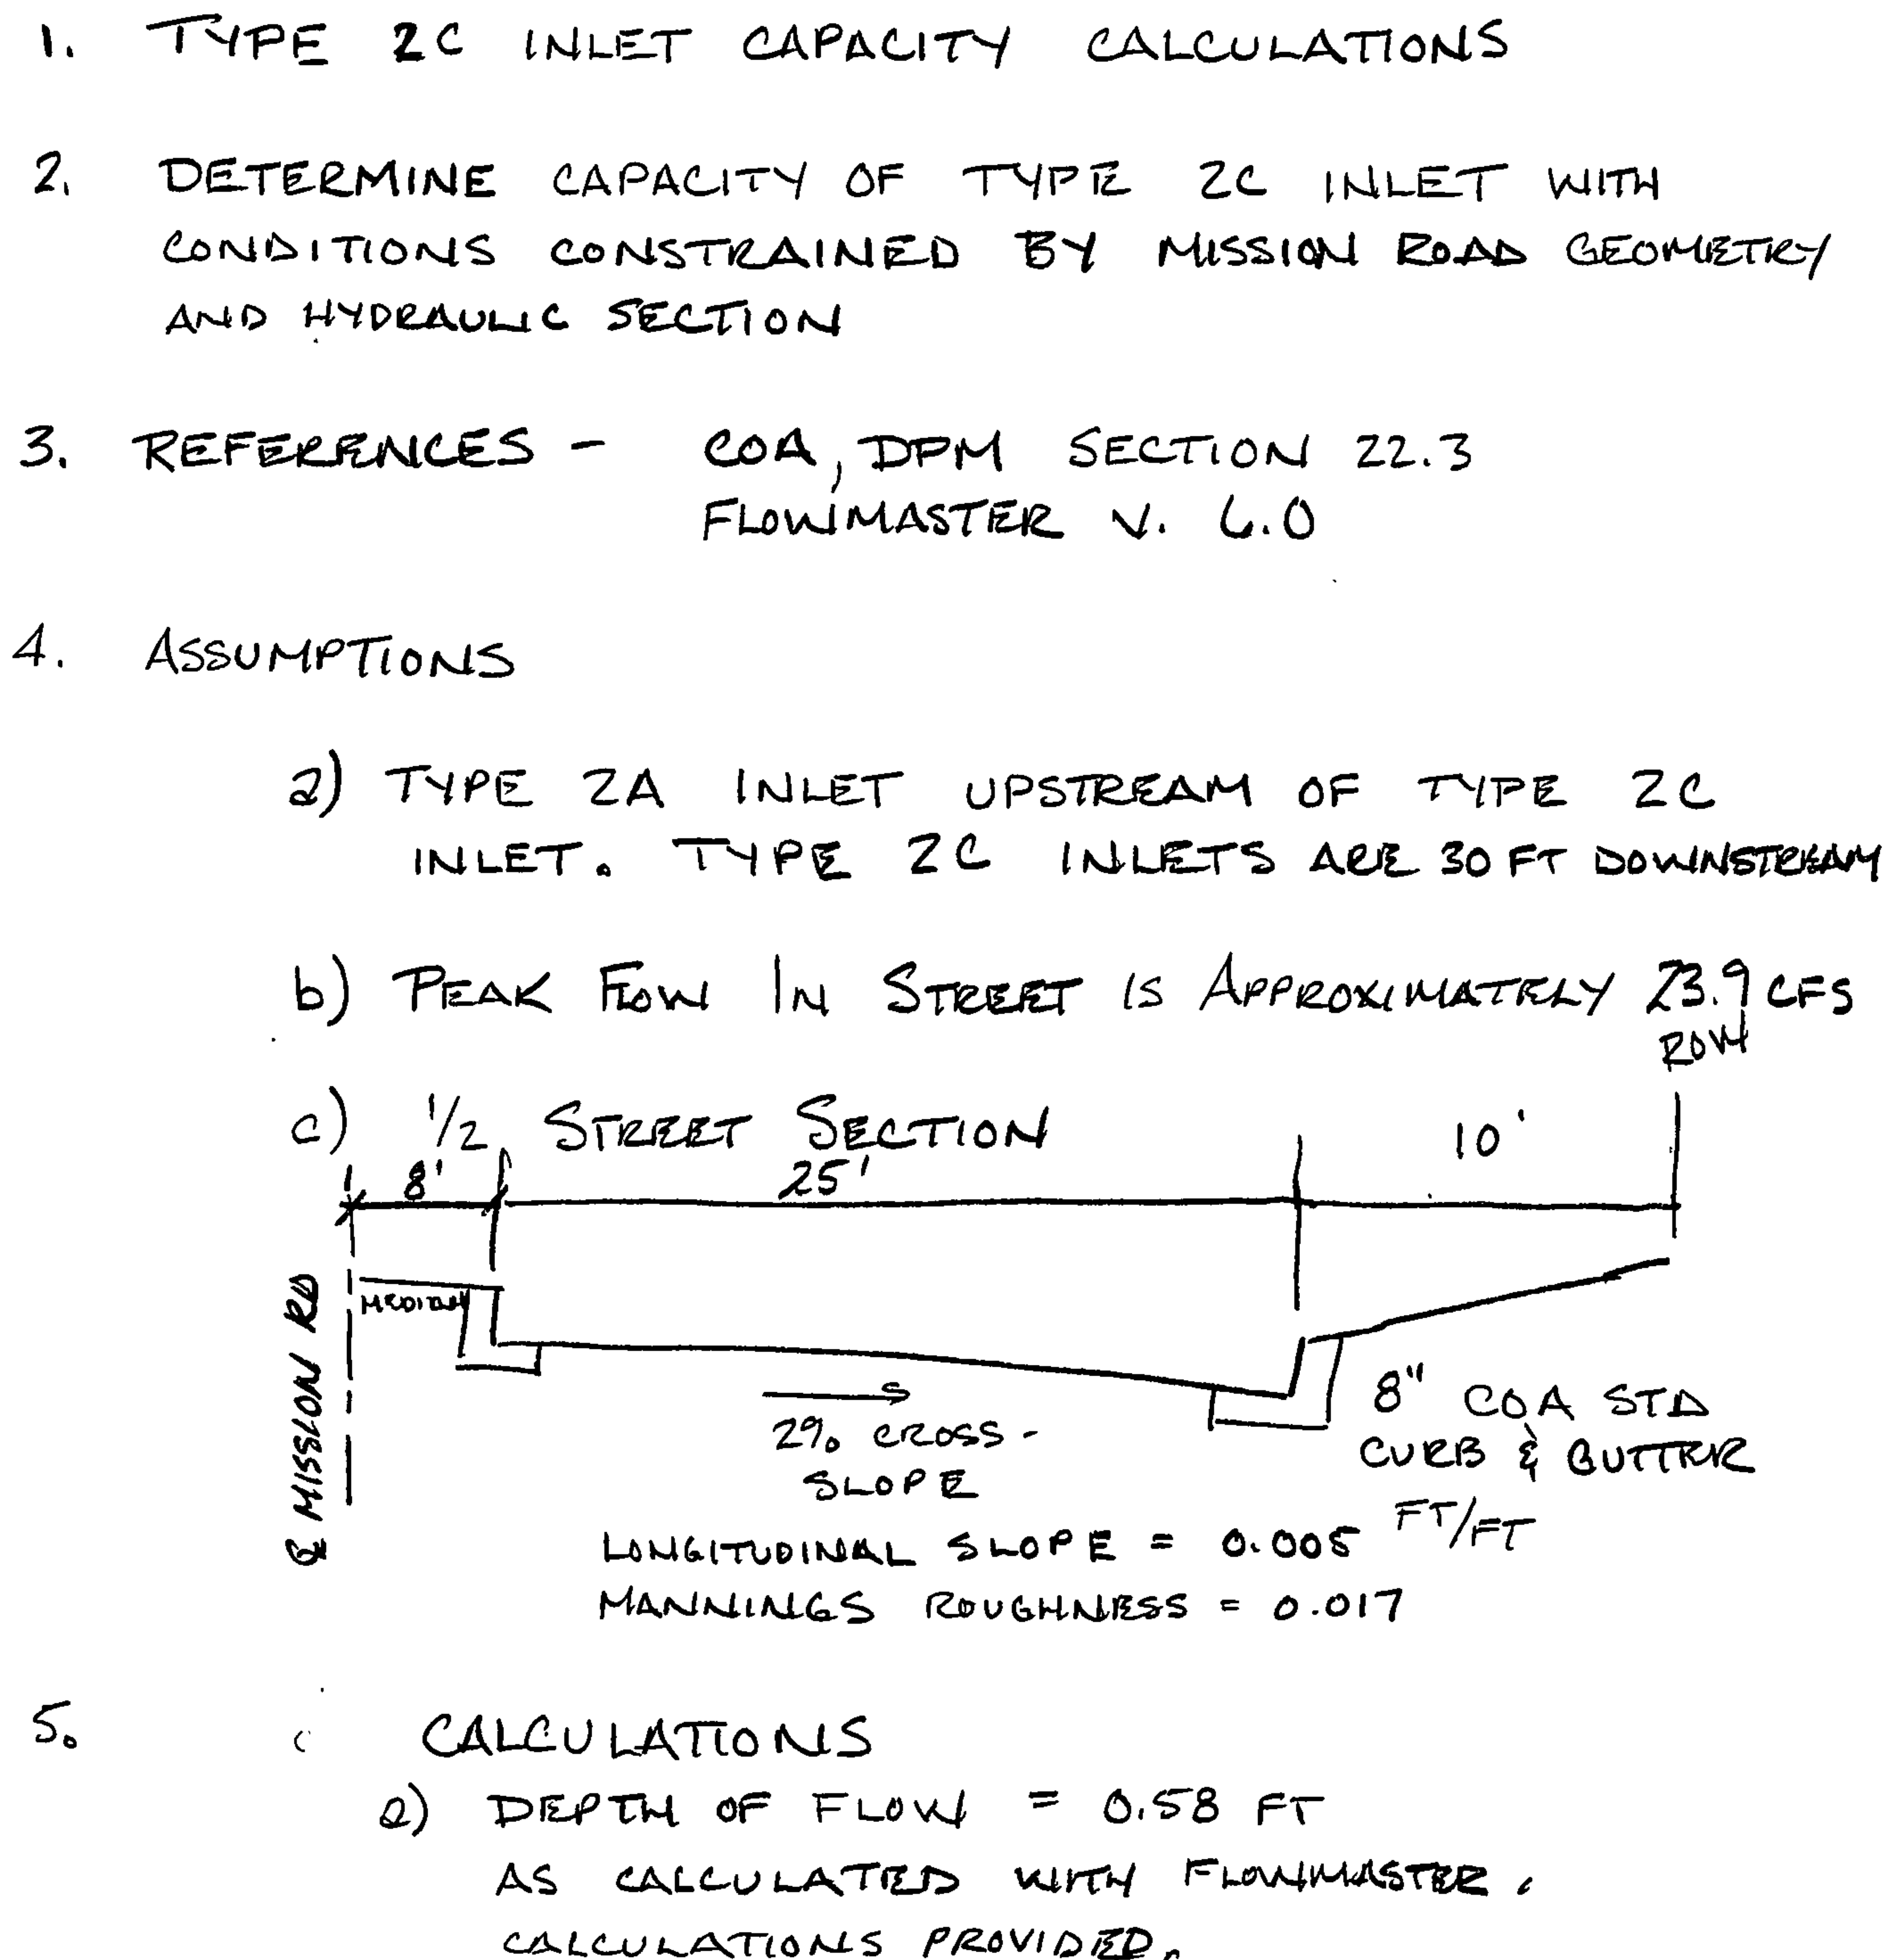 1. TYPE 2C INLET CAPACITY CALCULATIONS
2. DETERMINE CAPACITY OF TYPE 2C INLET WITH
CONDITIONS CONSTRAINED BY MISSION ROAD GEOMETRY
AND HYDRAULIC SECTION
3. REFERENCES - COA, DPM SECTION 22.3
FLOWMASTER V. 6.0
4. ASSUMPTIONS
a) TYPE 2A INLET UPSTREAM OF TYPE 2C
INLET. TYPE 2C INLETS ARE 30 FT DOWNSTREAM
b) PEAK FLOW IN STREET IS APPROXIMATELY 23.9 CFS
ROW
c) 1/2 STREET SECTION
8' 25' 10'
MEDIAN
℄ MISSION RD
2% CROSS-
SLOPE
8" COA STD
CURB & GUTTER
LONGITUDINAL SLOPE = 0.005 FT/FT
MANNINGS ROUGHNESS = 0.017
5. CALCULATIONS
a) DEPTH OF FLOW = 0.58 FT
AS CALCULATED WITH FLOWMASTER.
CALCULATIONS PROVIDED.